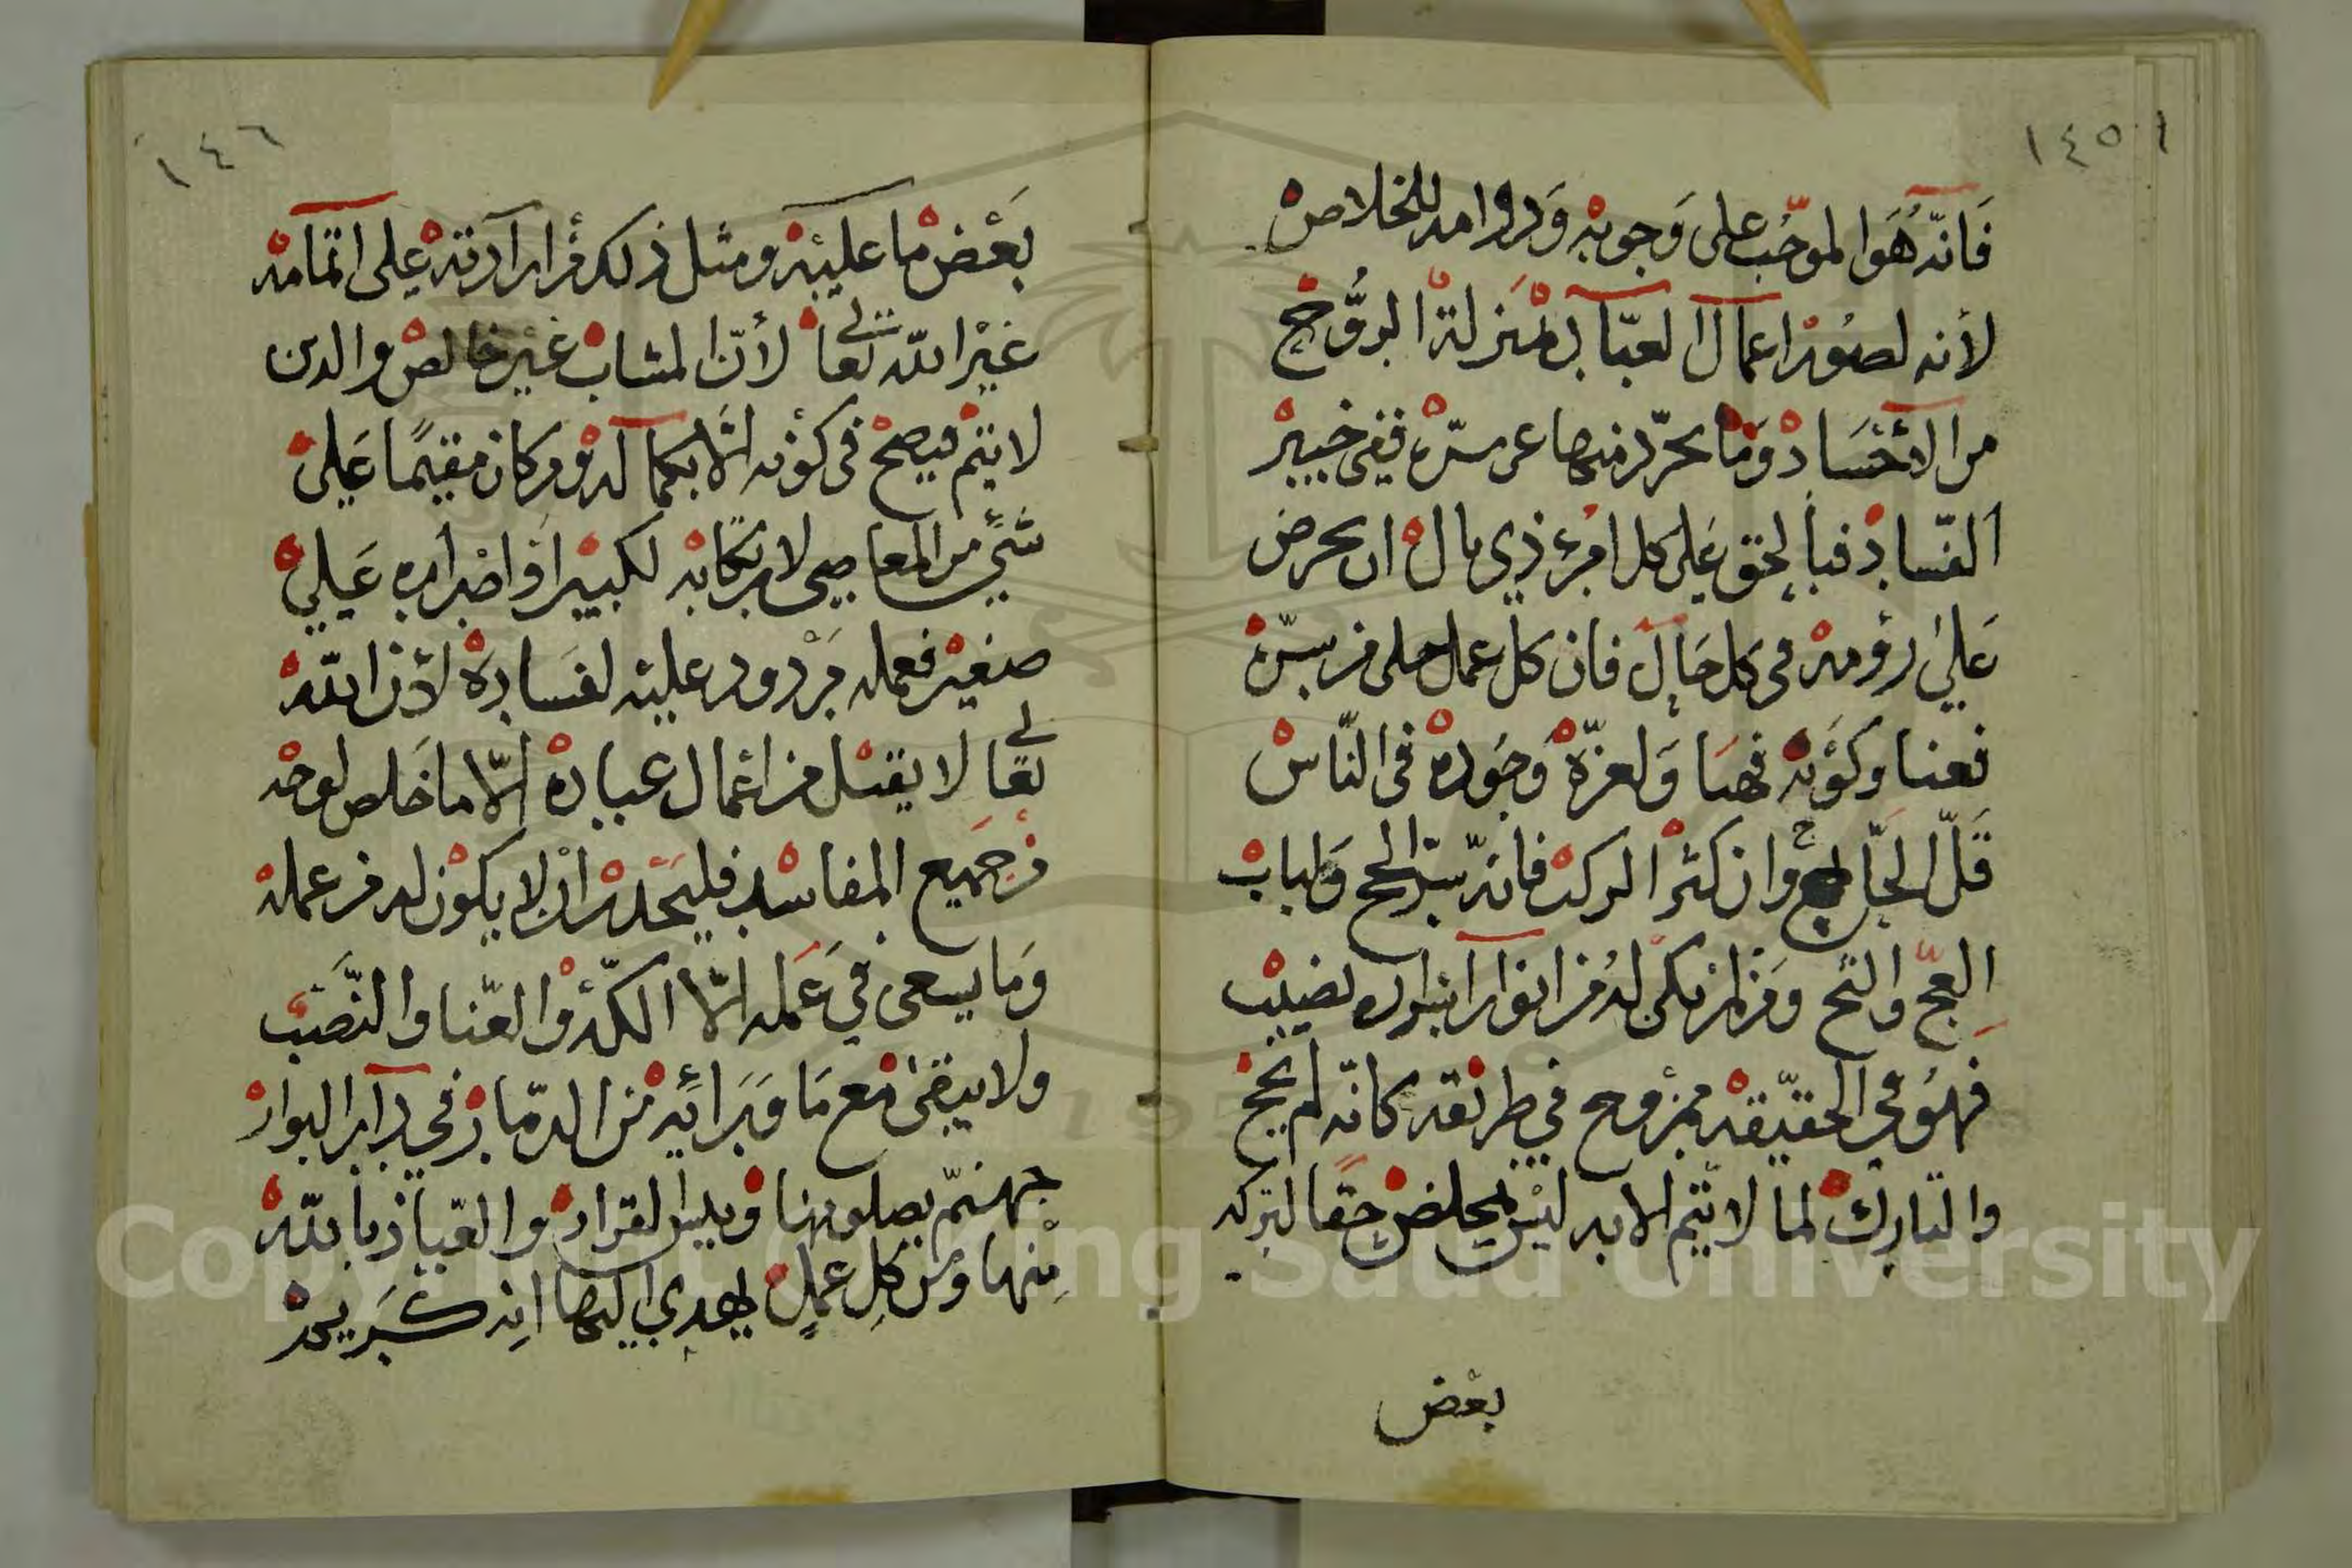 ١٤٥
فَانّه هُوَ الموجب على وَجوبه وَدوامه للخلاص
لأنه لصور اعمال العباد بمنزلة الروُّح
من الأجساد وَما تجرّد منها عن سرّه ففي خبير
الفساد فبالحق على كل امرئ ذي بال ان يحرض
عَلي رومه في كل حَال فان كل عمل خلى من سرّه
فعنا وكونه فهبا وَلعزّة وَجوده في النّاس
قَلّ الحَاج وان كثر الركب فانه سرّ الحج وَلباب
العجّ والثج ومن لم يكن له من انوار اسراره نصيب
فهوُ في الحقيقة ممزوج في طريقه كانّه لم يحج
والتارك لما لا يتم الا به ليس بمخلص حقا لتركه
بعض
١٤٦
بَعْض ما عليه ومثل ذلك من ارادته على اتمامه
غيْر الله تعالى لأنّ المشاب غير خالص والدين
لا يتم فيصح في كونه الّا بكماله ومن كان مقيمًا عَلى
شَيء من المعاصي لارتكابه لكبير اَو اضراره عَلي
صغير فعمله مَردود عليه لفسَاده لأن الله
تعالى لا يقبل من اعمال عباده الّا ما خَلص لوجه
من جميع المفاسد فليحذر ان لا يكون له من عمله
وَما يسعى في عَمله الّا الكدّ والعّنا والنَّصَب
ولا يبقى مع مَا وَرَائه من الدمّار في دار البوار
جهنّم يصلونها وبيس القرار والعيّاذ بالله
مِنها وَمن كلِ عملٍ يهدي اليها انه كَريم